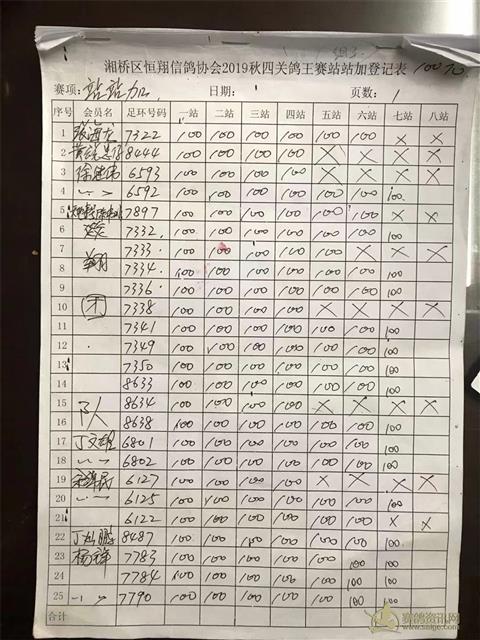 湘桥区恒翔信鸽协会2019秋四关鸽王赛站站加登记表 100元
赛项: 站站加 日期: 页数: 1
序号 会员名 足环号码 一站 二站 三站 四站 五站 六站 七站 八站
1 7322 100 100 100 100 100 100 × ×
2 8444 100 100 100 100 × × × ×
3 徐建伟 6593 100 100 100 100 × × × ×
4 〃 6592 100 100 100 100 100 100 100
5 7897 100 100 100 100 100 100 × ×
6 7332 100 100 100 100 100 100 100
7 翔 7333 100 100 100 100 × × × ×
8 7334 100 100 100 100 100 100 100
9 7336 100 100 100 100 100 100 100
10 团 7338 100 100 100 100 × × × ×
11 7341 100 100 100 100 100 100 100
12 7349 100 100 100 100 100 100 100
13 7350 100 100 100 100 100 100 100
14 8633 100 100 100 100 100 100 100
15 8634 100 100 100 100 × × × ×
16 队 8638 100 100 100 100 100 100 100
17 丁文雄 6801 100 100 100 100 100 100 100
18 〃 6802 100 100 100 100 100 100 100
19 6127 100 100 100 100 × × × ×
20 〃 6125 100 100 100 100 100 100 100
21 6122 100 100 100 100 100 100 × ×
22 8487 100 100 100 100 100 100 100
23 杨锋 7783 100 100 100 100 100 100 100
24 7784 100 100 100 100 100 100 100
25 〃 7790 100 100 100 100 100 100 100
合计
赛鸽资讯网
www.saige.com